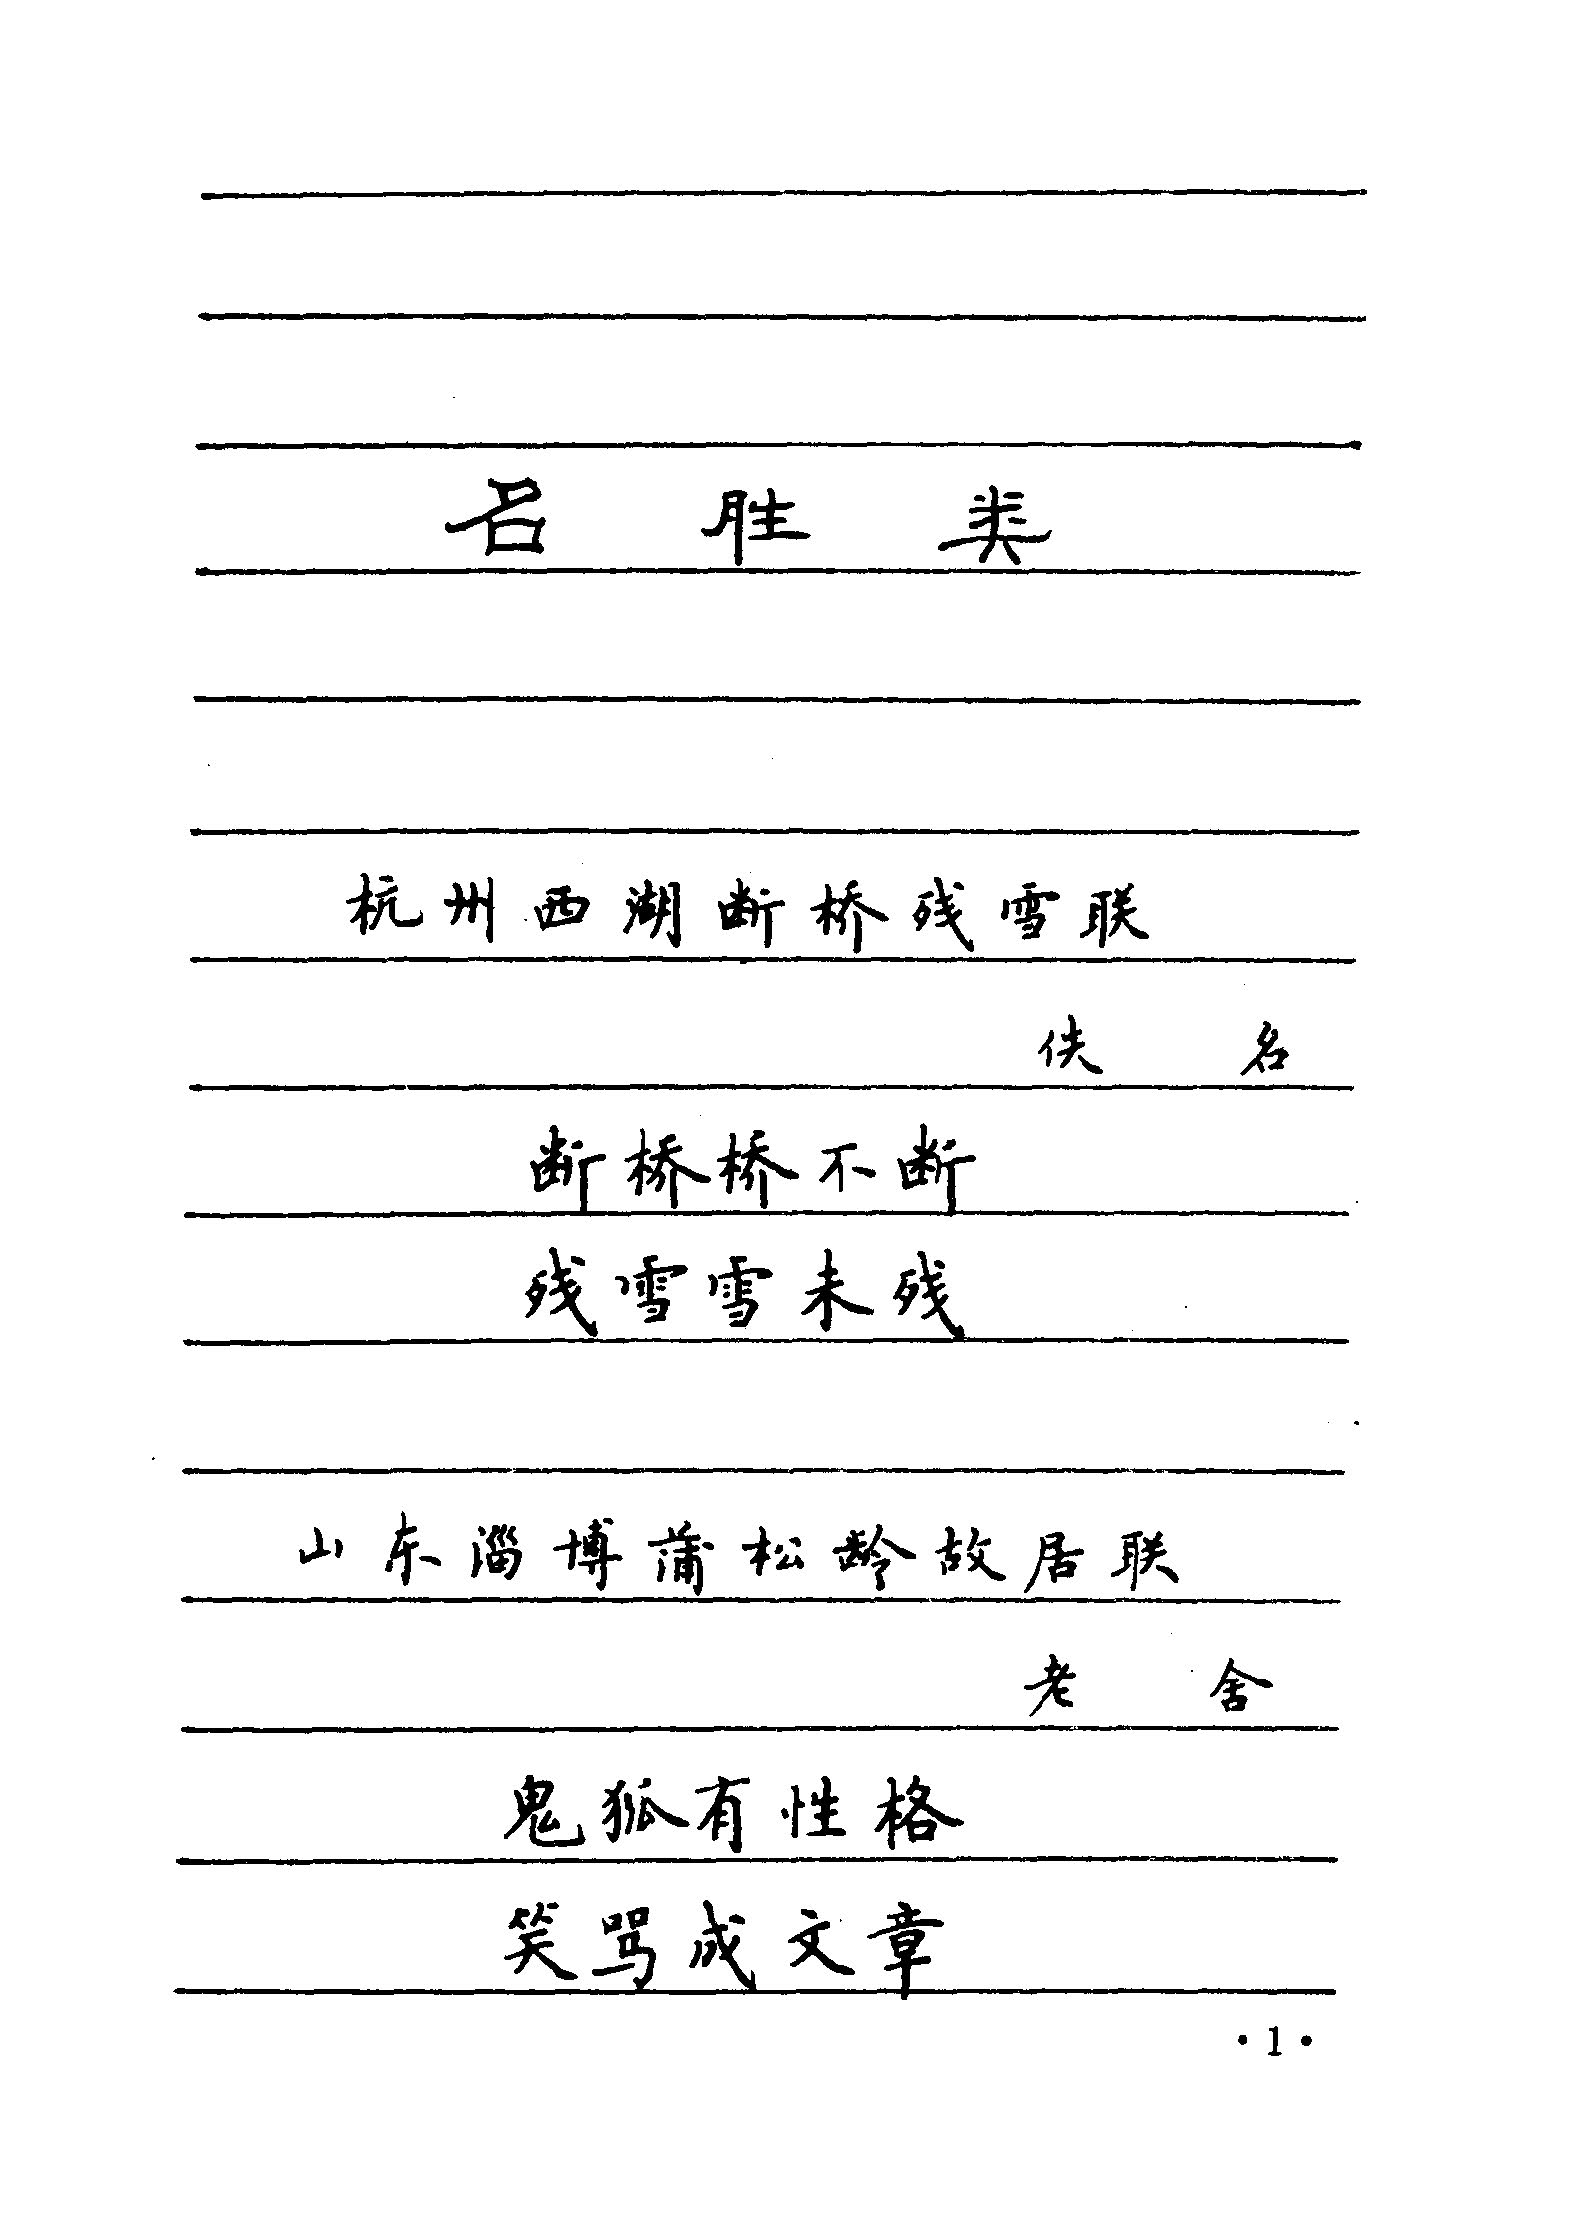 名 胜 类
杭州西湖断桥残雪联
佚 名
断桥桥不断
残雪雪未残
山东淄博蒲松龄故居联
老 舍
鬼狐有性格
笑骂成文章
·1·